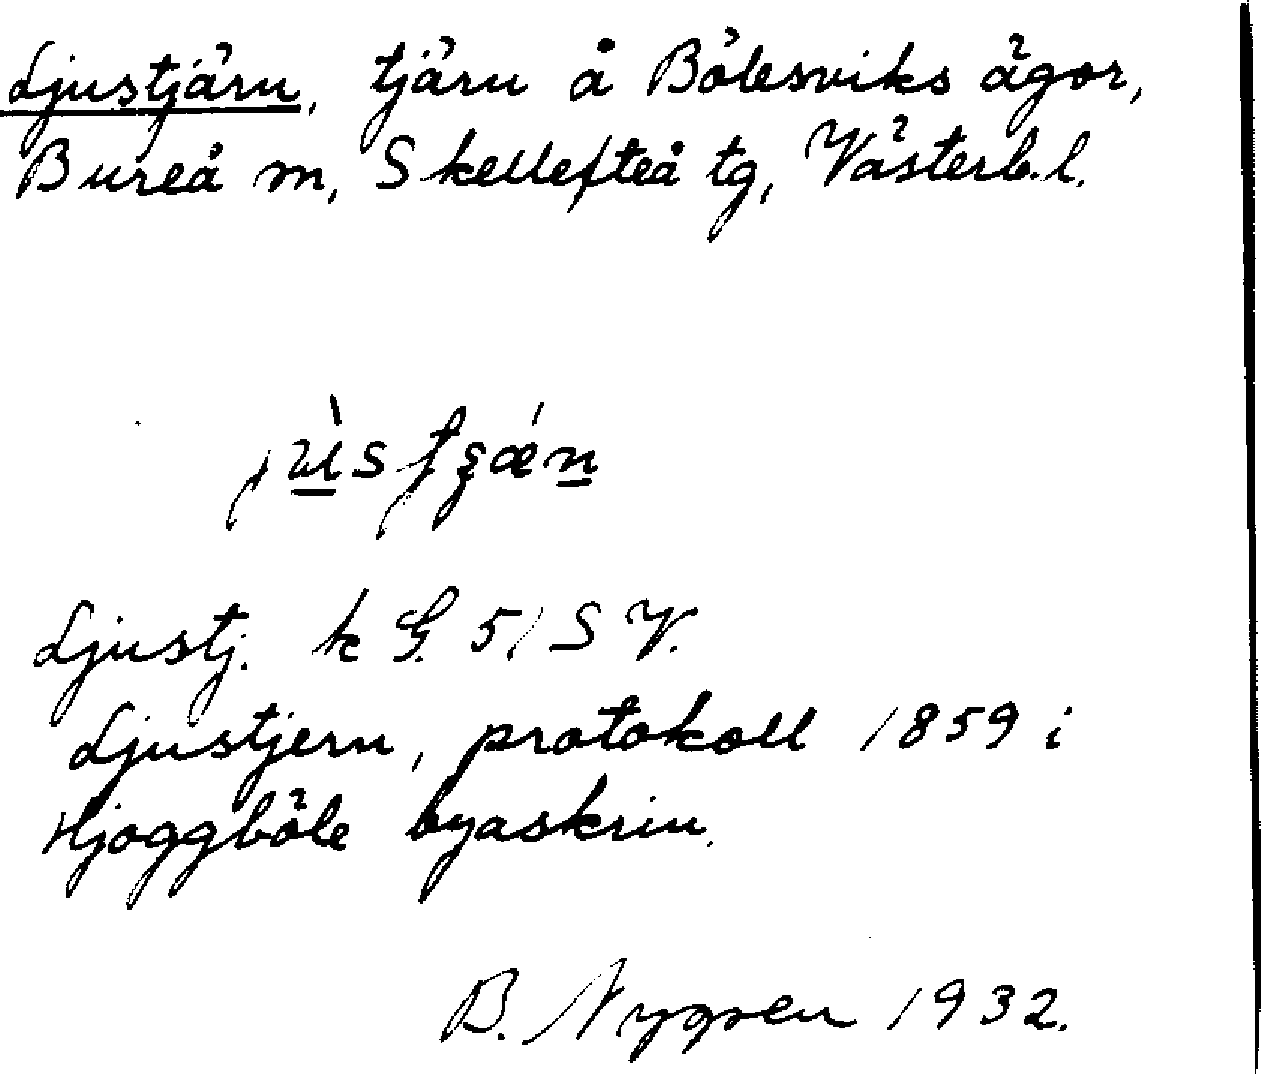 Ljustjärn, tjärn å Bölesviks ägor,
Bureå m, Skellefteå tg, Västerb. l.
Ljustj. k G. 51 S V.
Ljustjern, protokoll 1859 i
Hjoggböle byaskrin.
B. Nygren 1932.